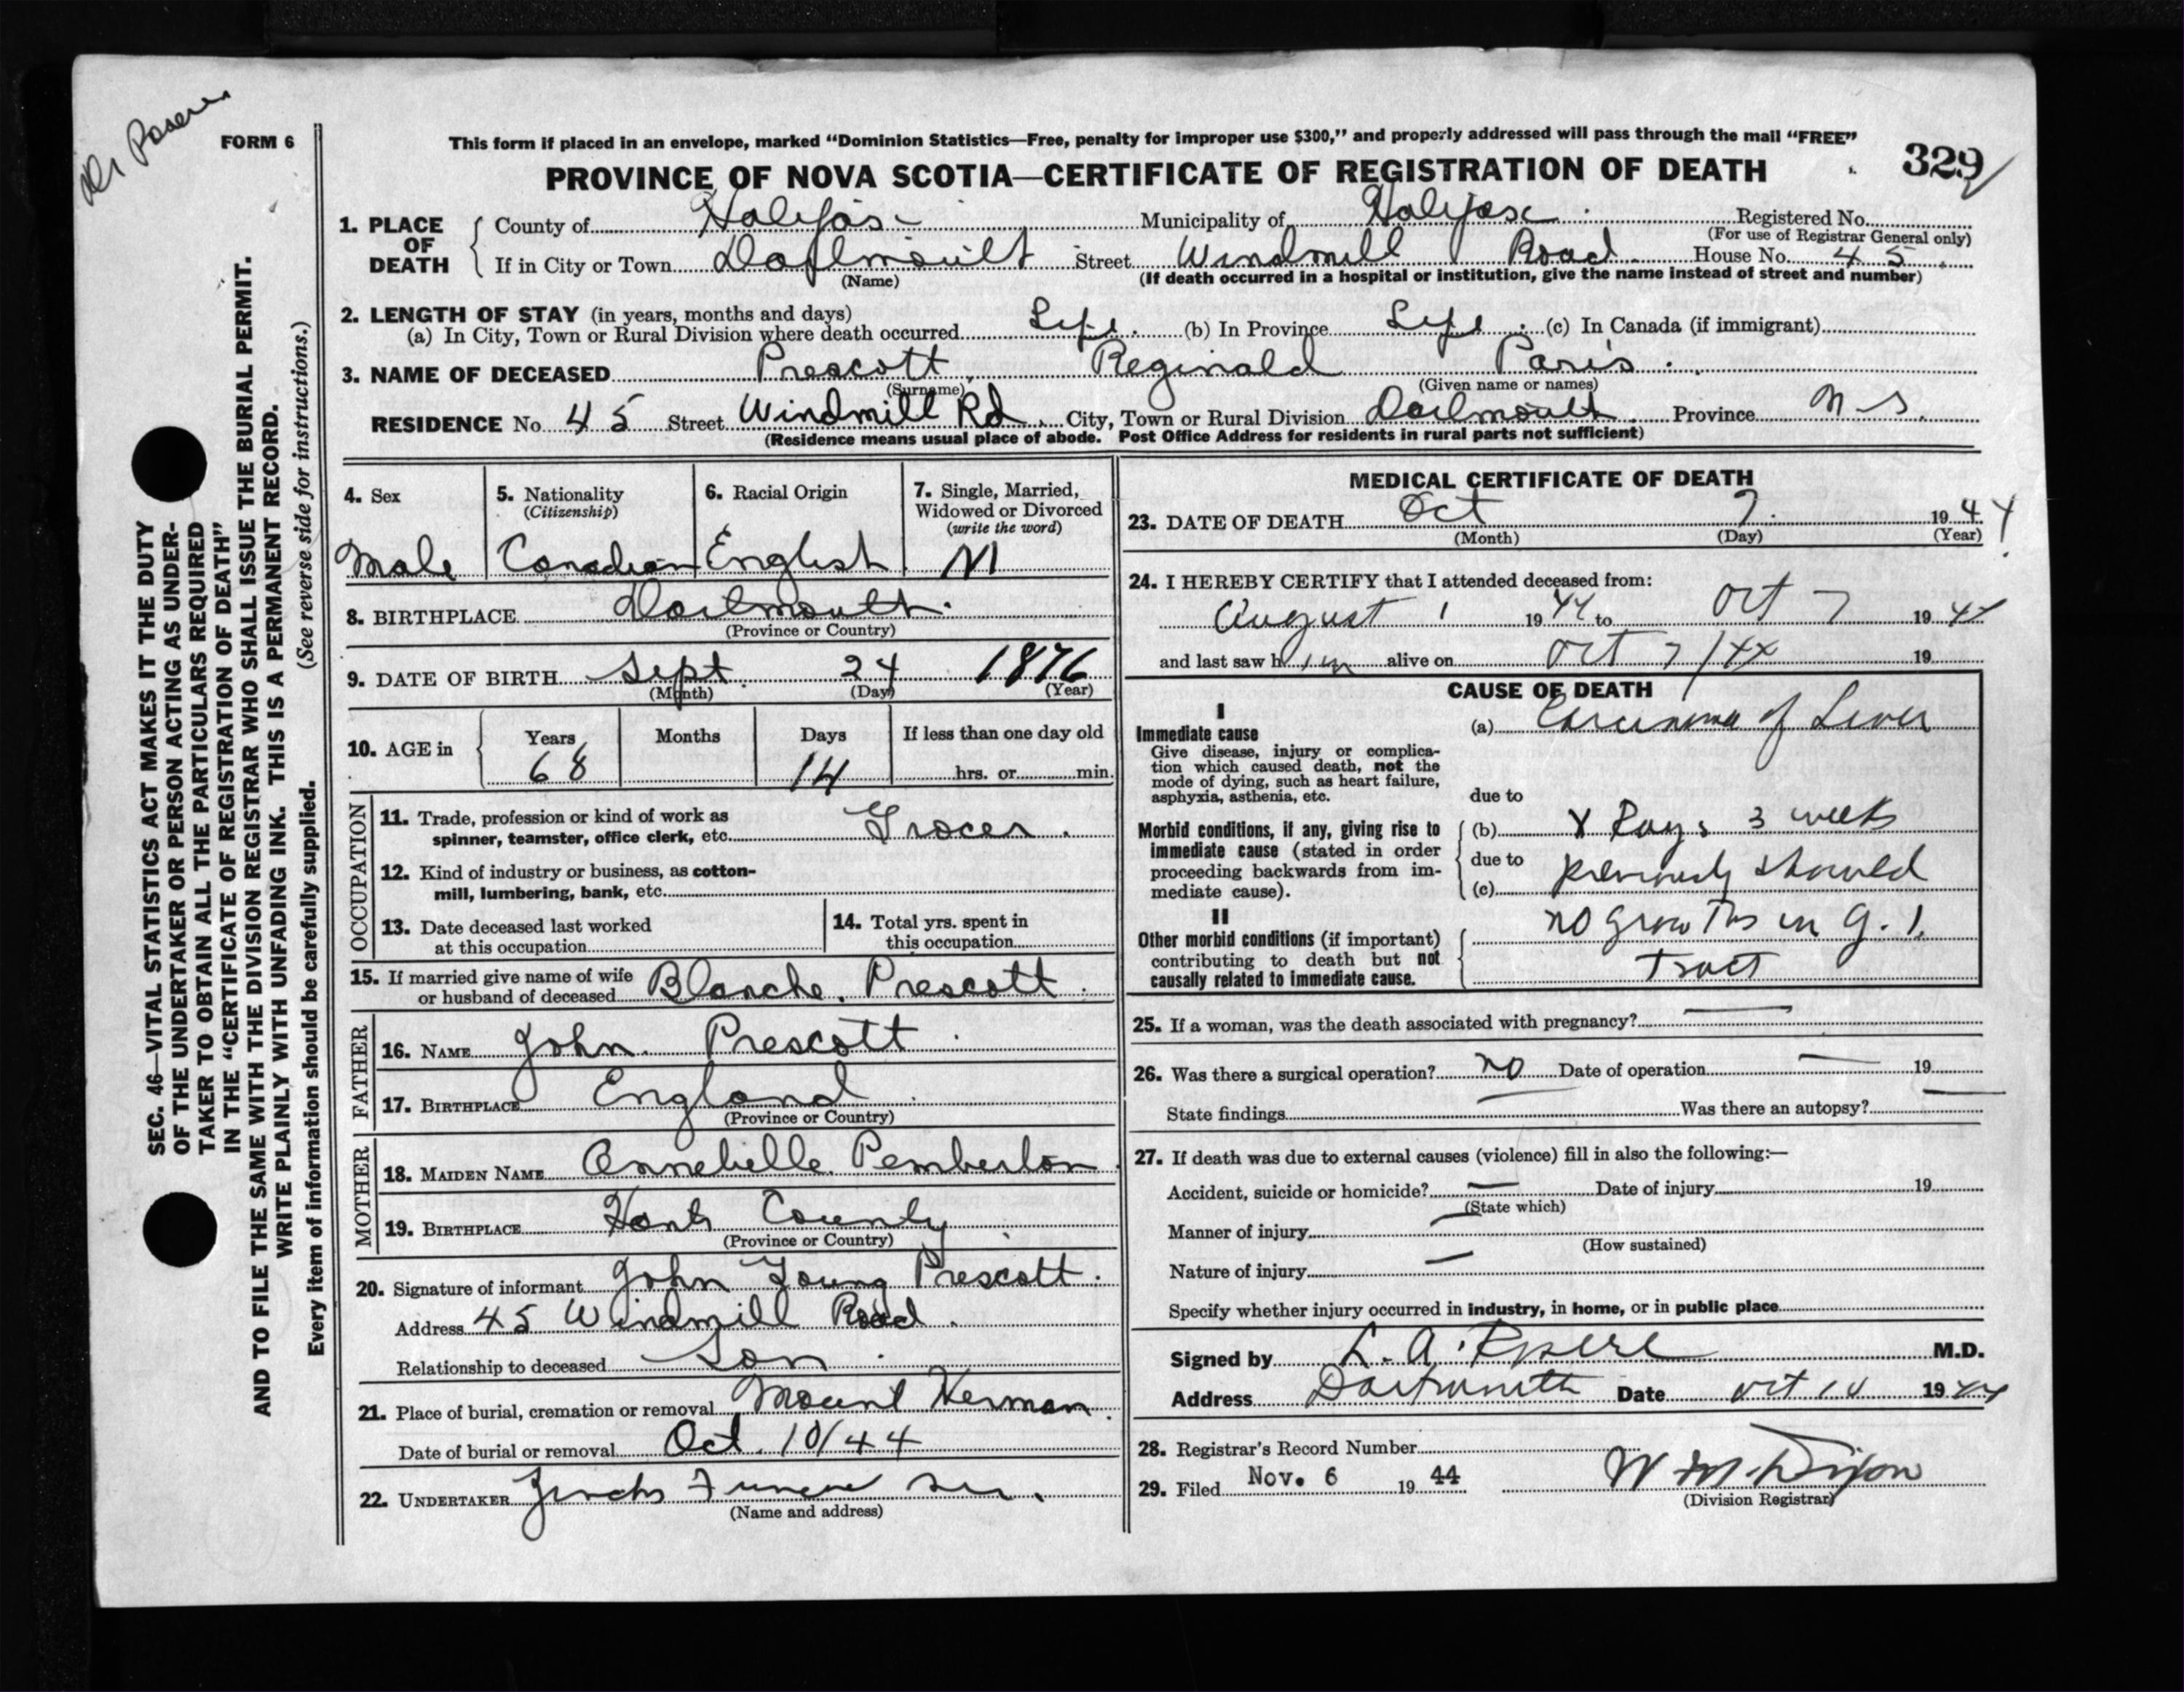 Dr
FORM 6
This form if placed in an envelope, marked "Dominion Statistics—Free, penalty for improper use $300," and properly addressed will pass through the mail "FREE"
PROVINCE OF NOVA SCOTIA—CERTIFICATE OF REGISTRATION OF DEATH
329
1. PLACE OF DEATH
County of Halifax Municipality of Halifax Registered No.
(For use of Registrar General only)
If in City or Town Dartmouth Street Windmill Road House No. 45
(Name) (If death occurred in a hospital or institution, give the name instead of street and number)
2. LENGTH OF STAY (in years, months and days)
(a) In City, Town or Rural Division where death occurred Life. (b) In Province Life. (c) In Canada (if immigrant)
3. NAME OF DECEASED Prescott, Reginald Paris.
(Surname) (Given name or names)
RESIDENCE No 45 Street Windmill Rd. City, Town or Rural Division Dartmouth. Province N S.
(Residence means usual place of abode. Post Office Address for residents in rural parts not sufficient)
SEC. 46—VITAL STATISTICS ACT MAKES IT THE DUTY
OF THE UNDERTAKER OR PERSON ACTING AS UNDER-
TAKER TO OBTAIN ALL THE PARTICULARS REQUIRED
IN THE "CERTIFICATE OF REGISTRATION OF DEATH"
AND TO FILE THE SAME WITH THE DIVISION REGISTRAR WHO SHALL ISSUE THE BURIAL PERMIT.
WRITE PLAINLY WITH UNFADING INK. THIS IS A PERMANENT RECORD.
Every item of information should be carefully supplied. (See reverse side for instructions.)
4. Sex
Male
5. Nationality
(Citizenship)
Canadian
6. Racial Origin
English
7. Single, Married,
Widowed or Divorced
(write the word)
M
8. BIRTHPLACE Dartmouth.
(Province or Country)
9. DATE OF BIRTH Sept. 24 1876
(Month) (Day) (Year)
10. AGE in
Years Months Days If less than one day old
68 14 hrs. or min.
OCCUPATION
11. Trade, profession or kind of work as
spinner, teamster, office clerk, etc. Grocer.
12. Kind of industry or business, as cotton-
mill, lumbering, bank, etc.
13. Date deceased last worked
at this occupation
14. Total yrs. spent in
this occupation
15. If married give name of wife
or husband of deceased Blanche. Prescott.
FATHER
16. NAME John. Prescott.
17. BIRTHPLACE England.
(Province or Country)
MOTHER
18. MAIDEN NAME Annebelle Pemberton
19. BIRTHPLACE Hants County.
(Province or Country)
20. Signature of informant John Young Prescott.
Address 45 Windmill Road.
Relationship to deceased Son.
21. Place of burial, cremation or removal Mount Herman.
Date of burial or removal Oct. 10/44
22. UNDERTAKER
(Name and address)
MEDICAL CERTIFICATE OF DEATH
23. DATE OF DEATH Oct 7. 1944
(Month) (Day) (Year)
24. I HEREBY CERTIFY that I attended deceased from:
August 1 1944 to Oct 7 1944
and last saw him alive on Oct 7/44 19
CAUSE OF DEATH
I
Immediate cause
Give disease, injury or complica-
tion which caused death, not the
mode of dying, such as heart failure,
asphyxia, asthenia, etc.
(a) Carcinoma of Liver
due to
Morbid conditions, if any, giving rise to
immediate cause (stated in order
proceeding backwards from im-
mediate cause).
(b) X Rays 3 weeks
due to
(c) previously showed
II
Other morbid conditions (if important)
contributing to death but not
causally related to immediate cause.
no growths in G.I.
Tract
25. If a woman, was the death associated with pregnancy? —
26. Was there a surgical operation? no Date of operation — 19
State findings Was there an autopsy? —
27. If death was due to external causes (violence) fill in also the following:—
Accident, suicide or homicide? — Date of injury 19
(State which)
Manner of injury —
(How sustained)
Nature of injury —
Specify whether injury occurred in industry, in home, or in public place
Signed by L. A. M.D.
Address Dartmouth Date Oct 10 1944
28. Registrar's Record Number
29. Filed Nov. 6 1944 W M. Dixon
(Division Registrar)